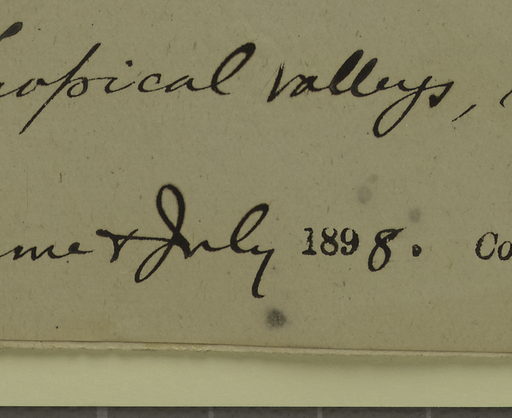 tropical valleys,
June & July 1898. Co